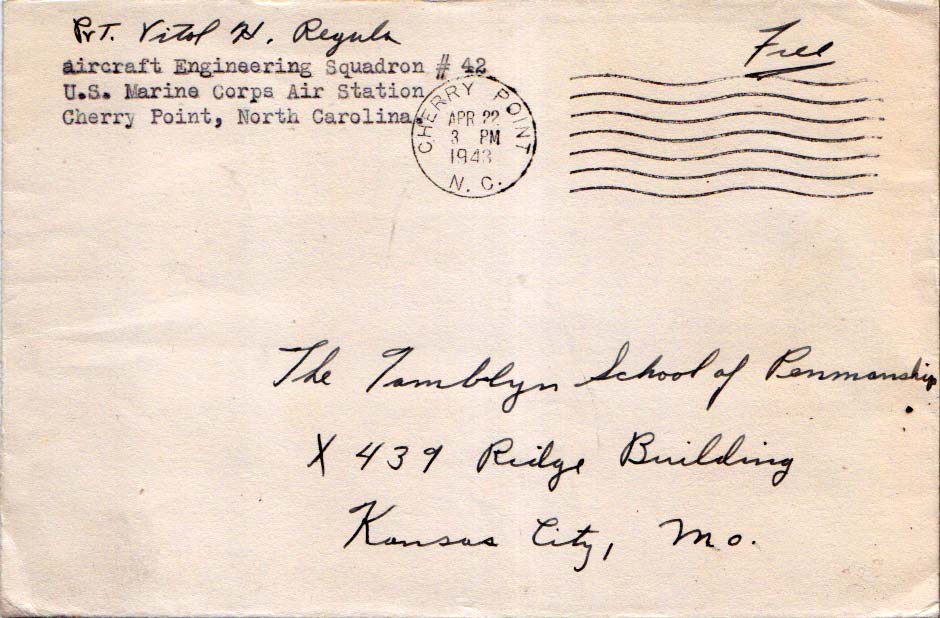 Pvt. Vital H. Regula
aircraft Engineering Squadron # 42
U.S. Marine Corps Air Station
Cherry Point, North Carolina.
CHERRY POINT
APR 22
3 PM
1943
N. C.
Free
The Tamblyn School of Penmanship
X 439 Ridge Building
Kansas City, Mo.